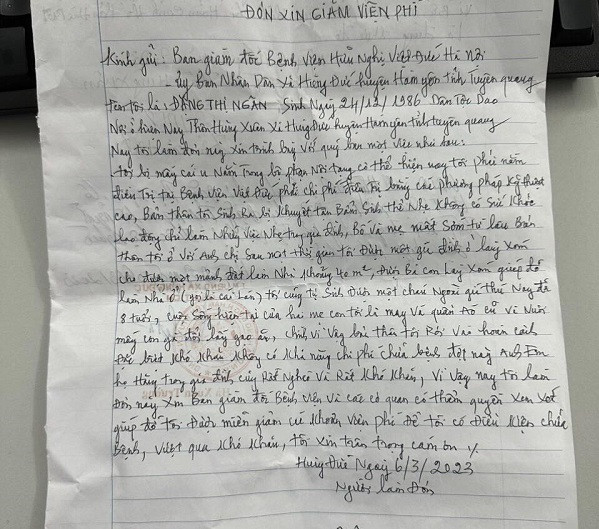 ĐƠN XIN GIẢM VIỆN PHÍ
Kính gửi: Ban giám đốc Bệnh Viện Hữu Nghị Việt Đức Hà Nội
- Ủy Ban Nhân Dân Xã Hùng Đức huyện Hàm yên tỉnh Tuyên quang
tên tôi là: ĐẶNG THỊ NGÂN Sinh Ngày 24/12/1986 Dân Tộc Dao
Nơi ở hiện Nay Thôn Hùng Xuân Xã Hùng Đức huyện Hàm yên tỉnh tuyên quang
Nay tôi làm đơn này Xin trình bày Với quý ban một Việc như sau:
tôi bị mấy cái u Nằm trong bộ phận Nội tạng cơ thể hiện nay tôi phải nằm
điều trị tại Bệnh Viện Việt Đức phải chi phí điều trị bằng các phương pháp Kỹ thuật
cao, Bản thân tôi Sinh Ra bị Khuyết tân Bẩm Sinh thể Nhẹ Không có Sức Khỏe
lao động chỉ làm Những Việc Nhẹ trong gia đình, Bố và mẹ mất Sớm từ lâu Bản
thân tôi ở Với Anh chị Sau một thời gian tôi Được một gia đình ở làng Xóm
cho được một mảnh đất làm Nhà Khoảng 40 m², Được Bà con Làng Xóm giúp đỡ
làm Nhà ở tôi cũng tự Sinh Được một cháu Ngoài giá thú Nay đã
8 tuổi, cuộc Sống hiện tại của hai mẹ con tôi là may Vá quần Áo cũ Và Nuôi
mấy con gà đổi lấy gạo ăn, chính vì Vậy bản thân tôi Rơi Vào hoàn cảnh
Đặc biệt Khó Khăn Không có Khả năng chi phí chữa bệnh đợt này Anh Em
họ Hàng trong gia đình cũng Rất Nghèo Và Rất Khó Khăn, Vì Vậy nay tôi làm
Đơn này Xin Ban giám đốc Bệnh Viện và các cơ quan có thẩm quyền Xem Xét
giúp đỡ tôi Được miễn giảm các Khoản Viện phí Để tôi có Điều Kiện chữa
Bệnh, Vượt qua Khó Khăn, tôi Xin trân trọng cảm ơn ./.
Hùng Đức Ngày 6/3/2023
Người làm Đơn